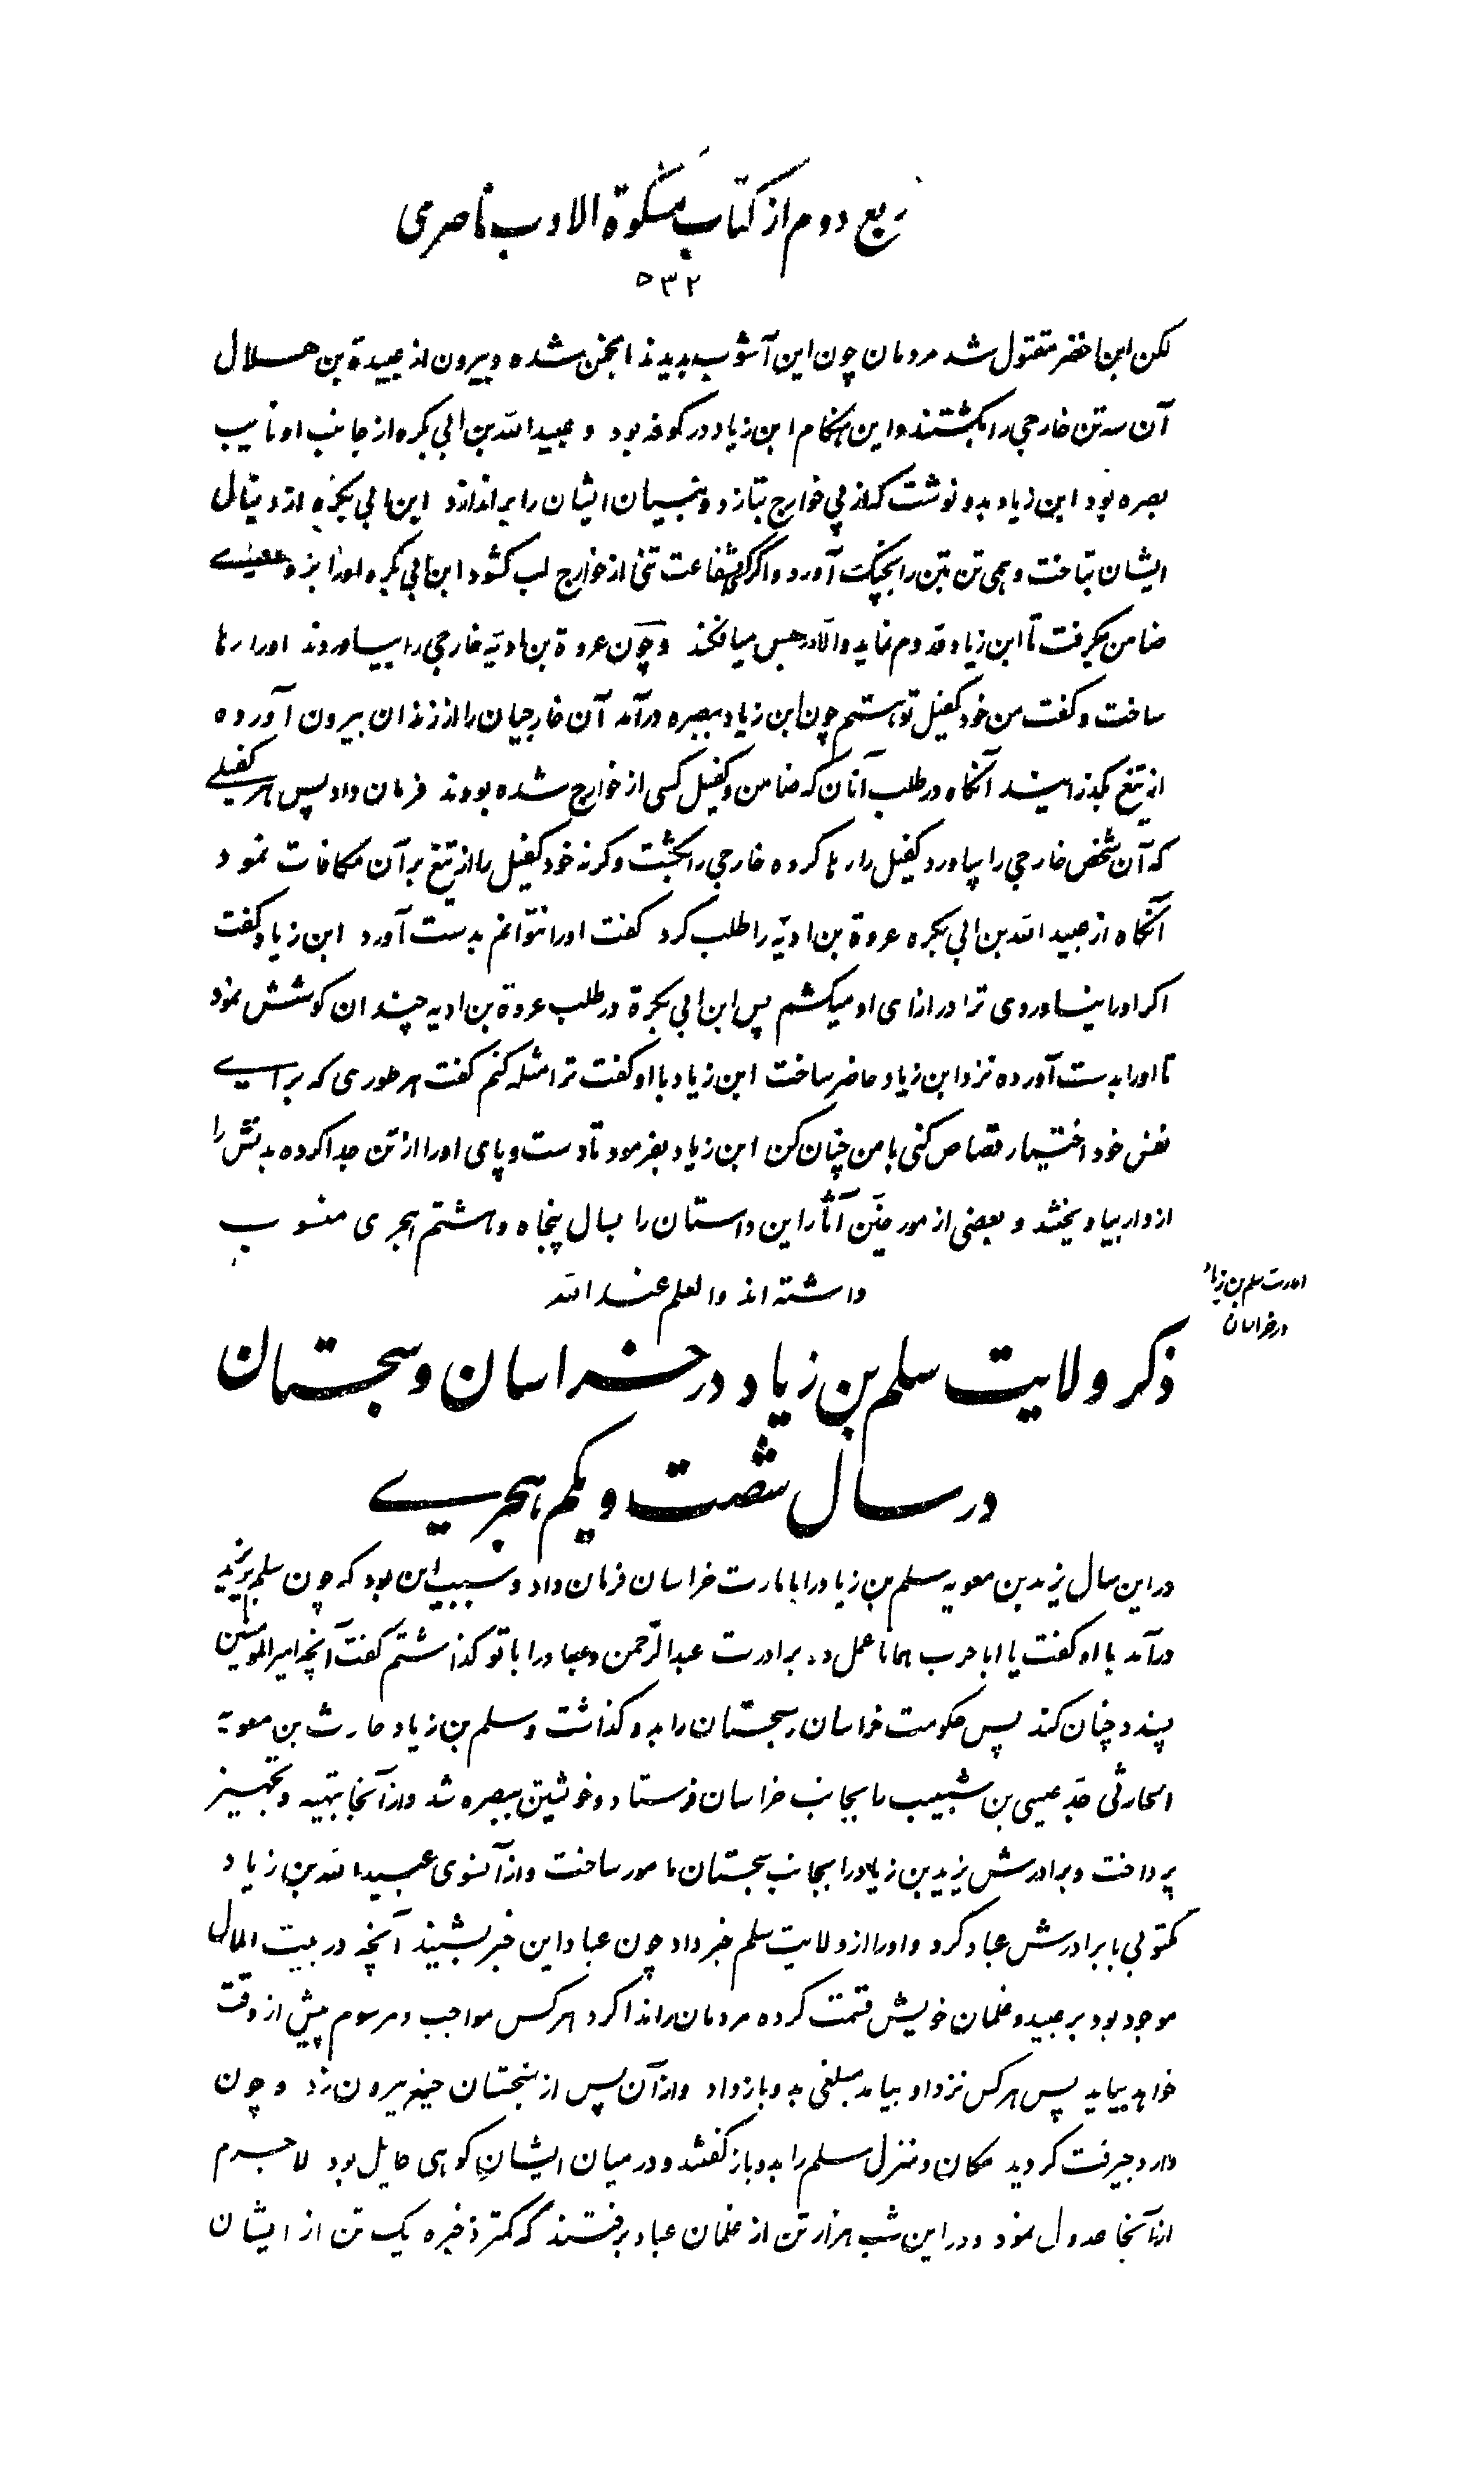 ربع دوم از کتاب مشکوة الادب ناصری
۵۳۲
لکن ابن اخضر مقتول شد مردمان چون این آشوب بدیدند انجمن شده و بیرون از عبیدة بن هلال
آن سه تن خارجی را بکشتند و این هنگام ابن زیاد در کوفه بود و عبیدالله بن ابی بکره از جانب او نایب
بصره بود ابن زیاد بدو نوشت که از پی خوارج بتازد و بنیان ایشان را براندازد ابن ابی بکره از دنبال
ایشان بتاخت و همی تن بتن را بچنگ آورد و اگر کسی بشفاعت تنی از خوارج لب کشود ابن ابی بکره او را نزد
ضامن میگرفت تا ابن زیاد قدوم نماید والا در حبس میافکند و چون عروة بن ادیّه خارجی را بیاوردند او را رها
ساخت و گفت من خود کفیل تو هستم چون ابن زیاد ببصره درآمد آن خارجیان را از زندان بیرون آورده
از تیغ بگذرانید آنگاه در طلب آنان که ضامن و کفیل کسی از خوارج شده بودند فرمان داد پس هر کفیلی
که آن شخص خارجی را بیاورد کفیل را رها کرده خارجی را بکشت و گرنه خود کفیل را از تیغ بر آن مکافات نمود
آنگاه از عبیدالله بن ابی بکره عروة بن ادیّه را طلب کرد گفت او را نتوانم بدست آورد ابن زیاد گفت
اگر او را نیاوردی ترا در ازای او میکشم پس ابن ابی بکرة در طلب عروة بن ادیه چندان کوشش نمود
تا او را بدست آورده نزد ابن زیاد حاضر ساخت ابن زیاد با او گفت ترا مثله کنم گفت هر طوری که برای
نفس خود اختیار قصاص کنی با من چنان کن ابن زیاد بفرمود تا دست و پای او را از تن جدا کرده بدنش را
از دار بیاویختند و بعضی از مورخین آثار این داستان را بسال پنجاه و هشتم هجری منسوب
داشته اند والعلم عند الله
امارت سلم بن زیاد
در خراسان
ذکر ولایت سلم بن زیاد در خراسان و سجستان
در سال شصت و یکم هجری
در این سال یزید بن معویه سلم بن زیاد را بامارت خراسان فرمان داد و سبب این بود که چون سلم بر یزید
درآمد با او گفت یا ابا حرب همانا عمل دو برادرت عبدالرّحمن و عباد را با تو گذاشتم گفت آنچه امیرالمومنین
پسندد چنان کند پس حکومت خراسان و سجستان را بدو گذاشت و سلم بن زیاد حارث بن معویه
الحارثی جدّ عیسی بن شبیب را بجانب خراسان فرستاد و خویشتن ببصره شد و از آنجا بتهیه و تجهیز
پرداخت و برادرش یزید بن زیاد را بجانب سجستان مامور ساخت و از آنسوی عبیدالله بن زیاد
مکتوبی با برادرش عباد کرد و او را از ولایت سلم خبر داد چون عباد این خبر بشنید آنچه در بیت المال
موجود بود بر عبید و غلمان خویش قسمت کرده مردمان را ندا کرد هر کس مواجب و مرسوم پیش از وقت
خواهد بیاید پس هر کس نزد او بیامد مبلغی بدو باز داد و از آن پس از سجستان خیمه بیرون زد و چون
وارد جیرفت گردید مکان و منزل سلم را بدو باز گفتند و در میان ایشان کوهی حایل بود لاجرم
از آنجا عدول نمود و در این شب هزار تن از غلمان عباد برفتند که کمتر ذخیره یک تن از ایشان